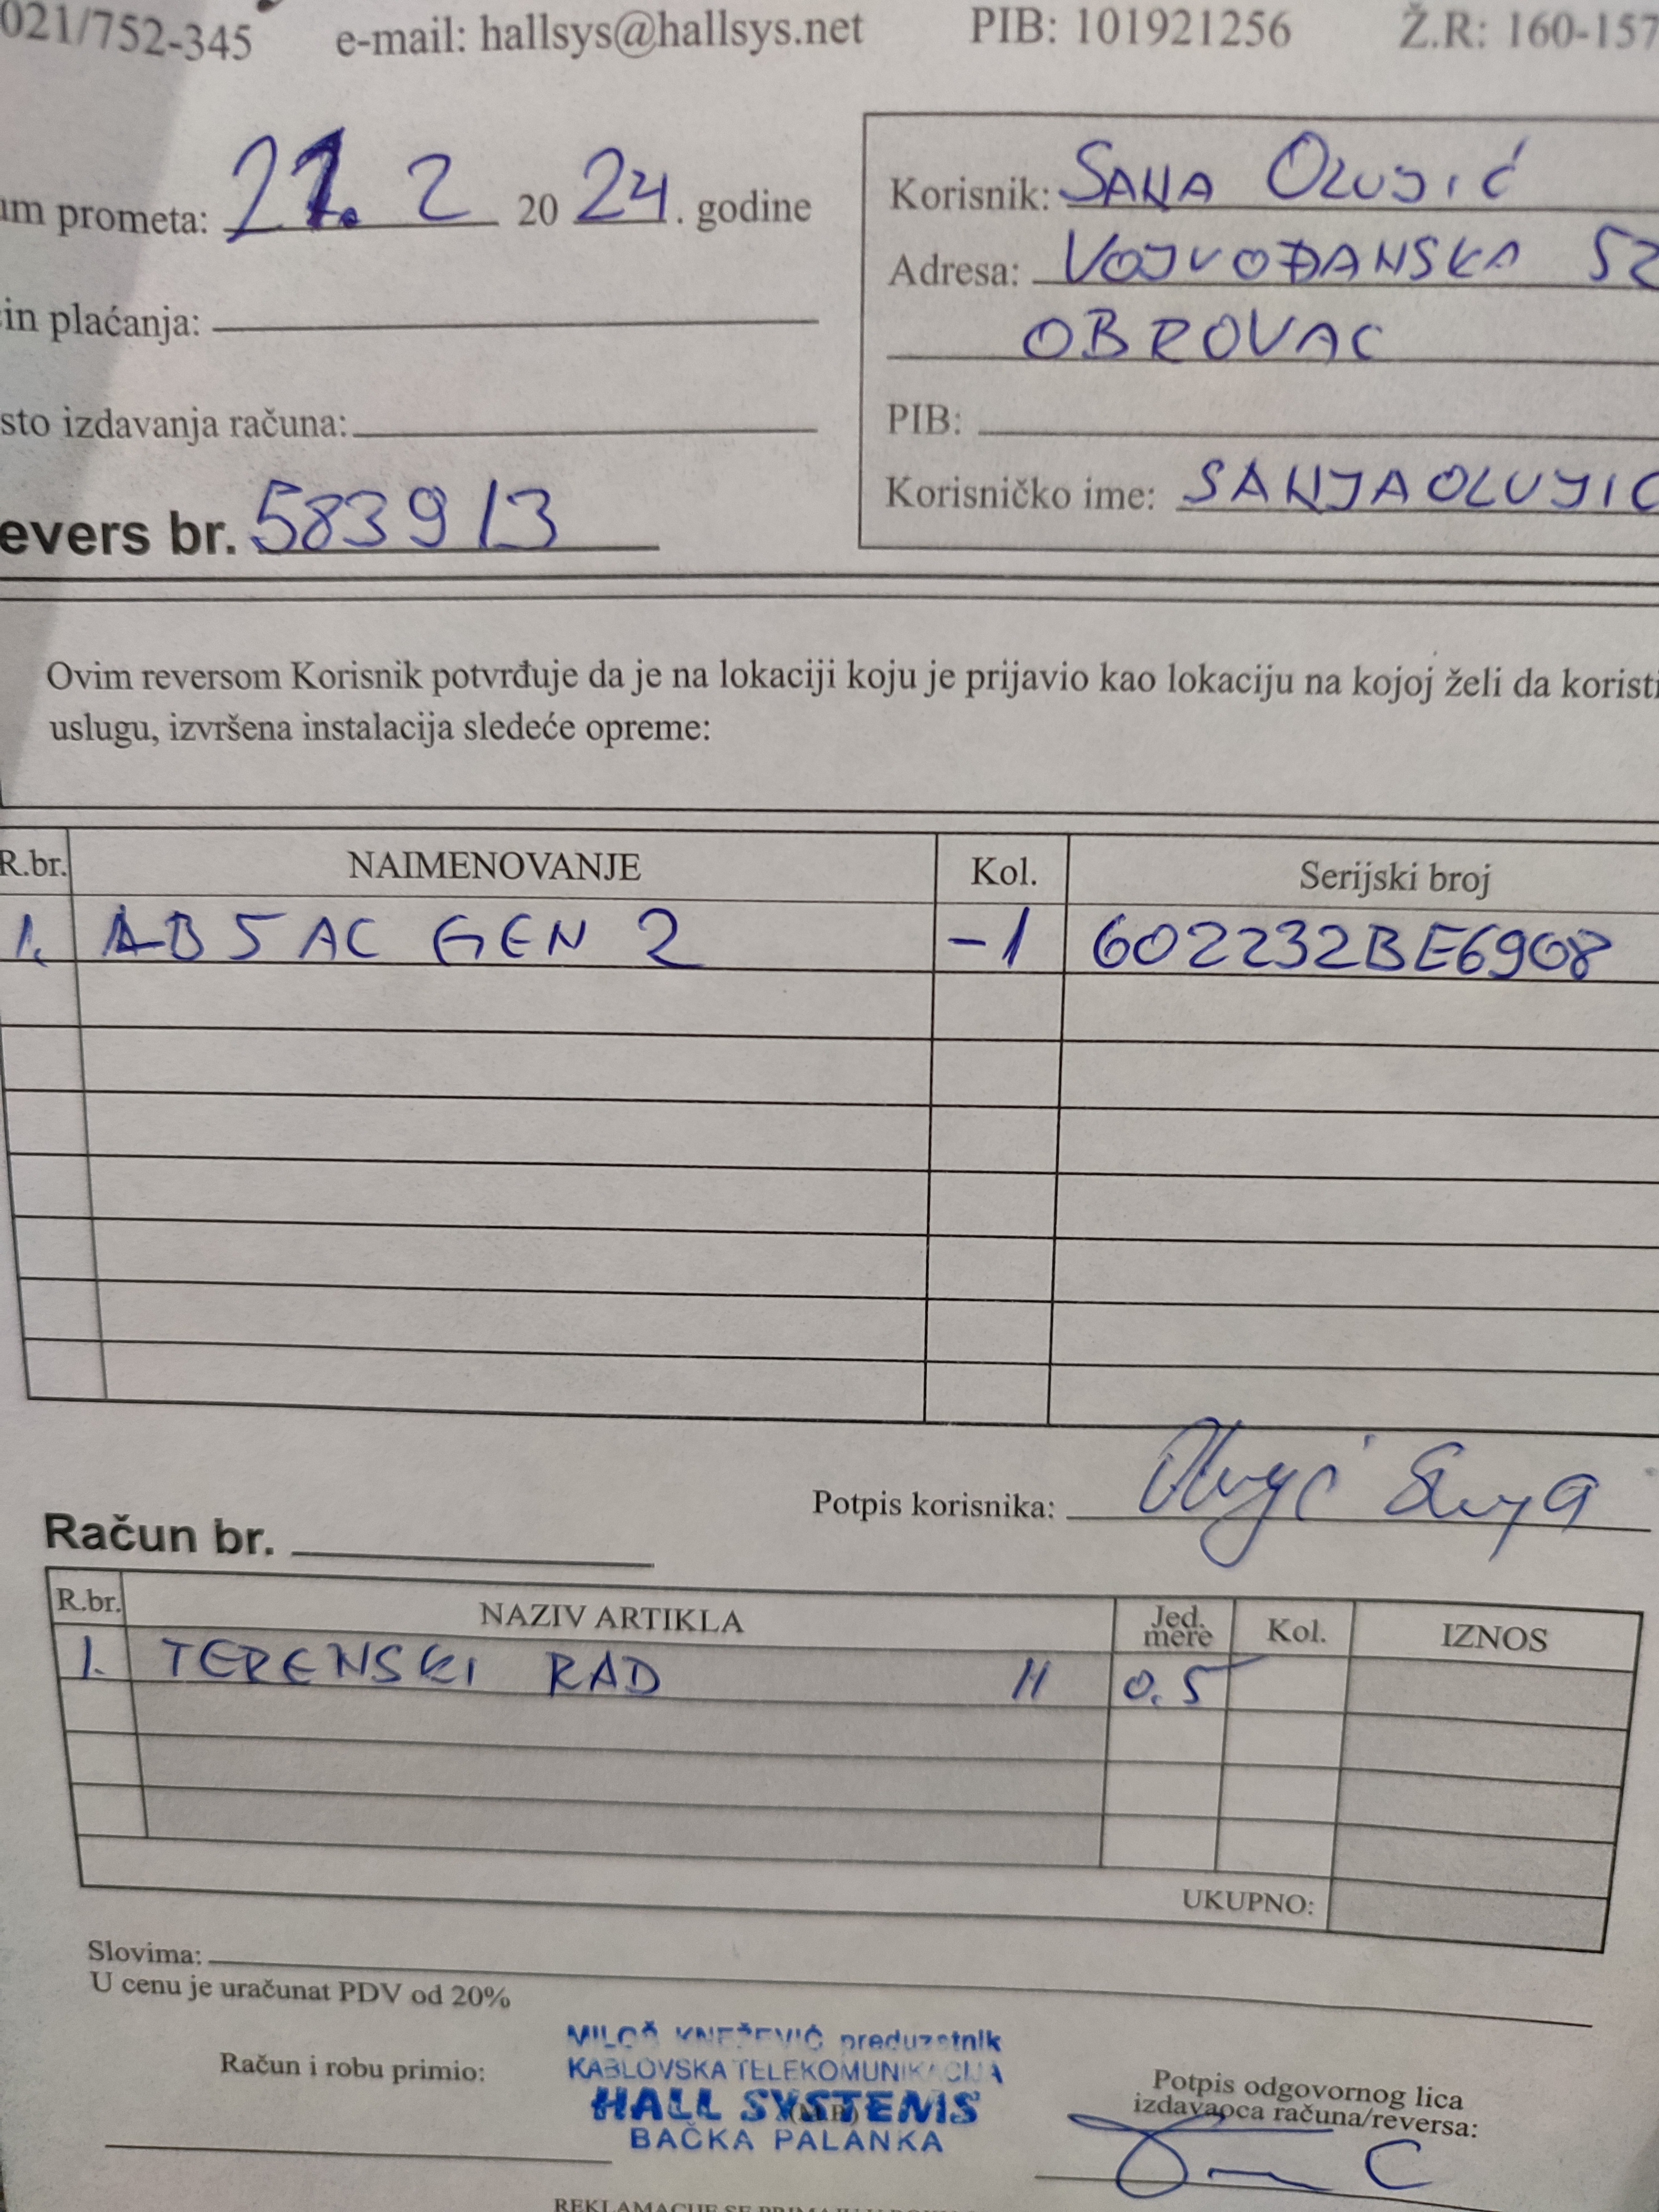 021/752-345 e-mail: hallsys@hallsys.net PIB: 101921256 Ž.R: 160-157
um prometa: 21. 2 20 24. godine
in plaćanja:
sto izdavanja računa:
evers br. 5839/3
Korisnik: SANA OLUJIĆ
Adresa: VOJVOĐANSKA 52
OBROVAC
PIB:
Korisničko ime: SANJAOLUJIC
Ovim reversom Korisnik potvrđuje da je na lokaciji koju je prijavio kao lokaciju na kojoj želi da koristi
uslugu, izvršena instalacija sledeće opreme:
R.br. NAIMENOVANJE Kol. Serijski broj
1. LB 5 AC GEN 2 -1 602232BE6908
Potpis korisnika: Olujić Sanja
Račun br.
R.br. NAZIV ARTIKLA Jed. mere Kol. IZNOS
1. TERENSKI RAD H 0.5
UKUPNO:
Slovima:
U cenu je uračunat PDV od 20%
Račun i robu primio:
MILOŠ KNEŽEVIĆ preduzetnik
KABLOVSKA TELEKOMUNIKACIJA
HALL SYSTEMS
(M.P.)
BAČKA PALANKA
Potpis odgovornog lica
izdavaoca računa/reversa: